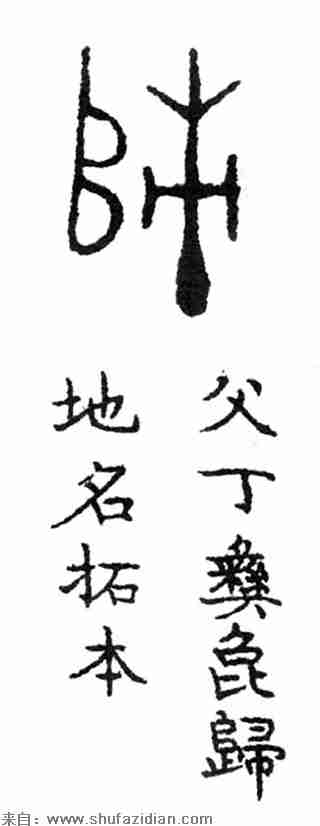 父丁彝歸
地名拓本
来自：www.shufazidian.com